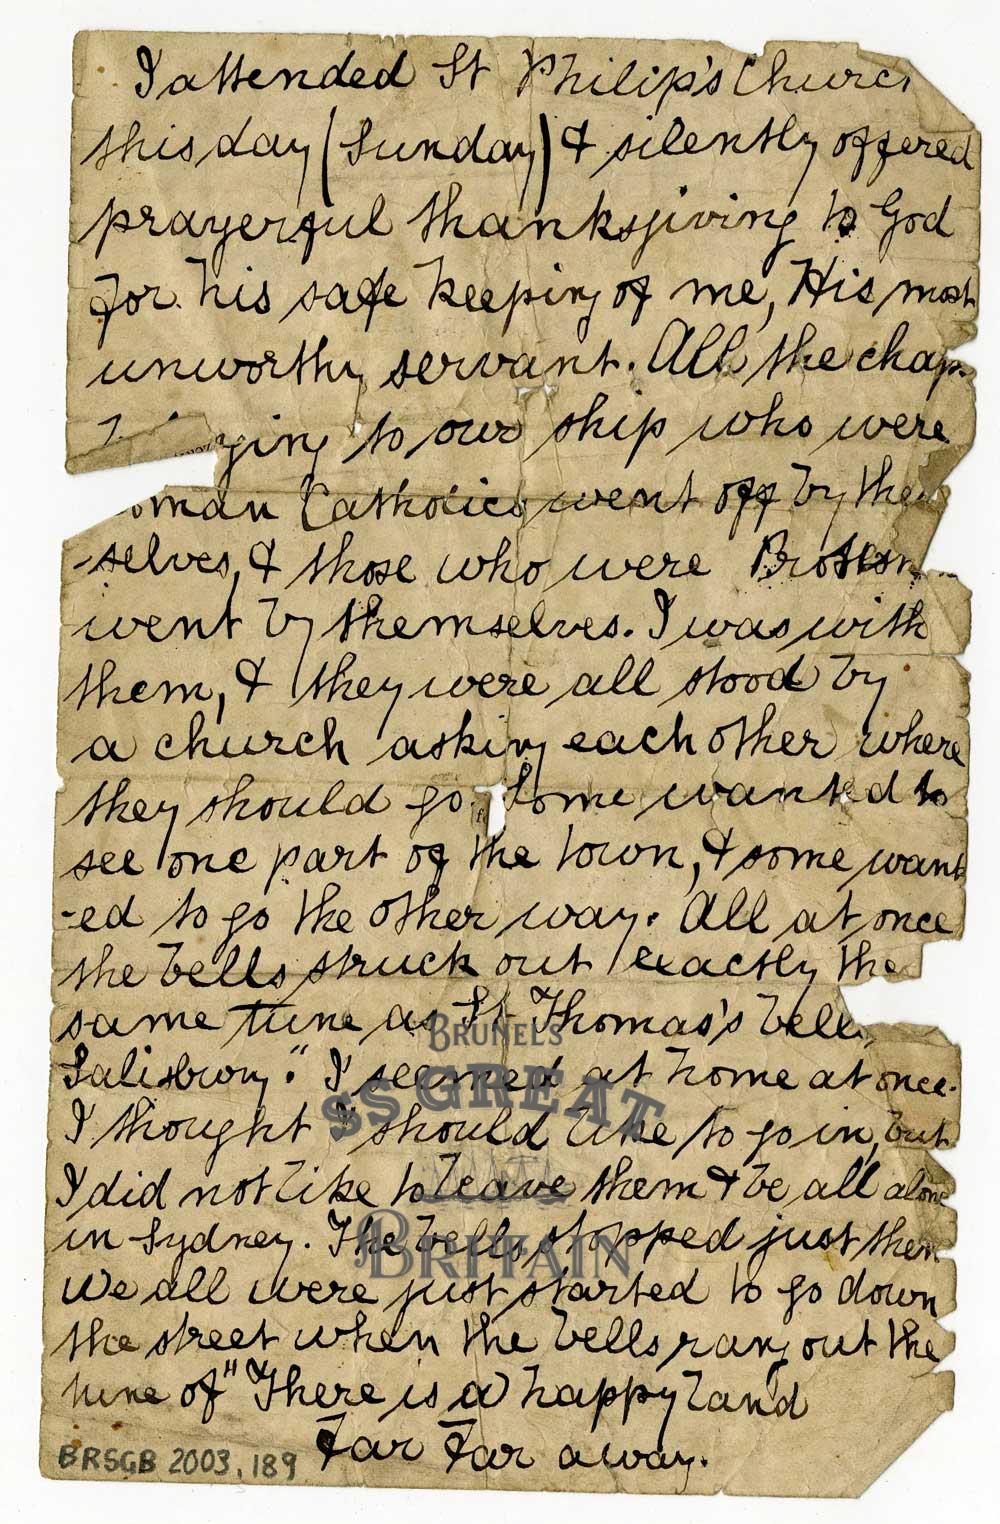 I attended St Philip's Churc
this day (Sunday) & silently offered
prayerful thanksgiving to God
for his safe keeping of me, His most
unworthy servant. All the chap
ging to our ship who were
oman Catholics went off by the
-selves, & those who were
went by themselves. I was with
them, & they were all stood by
a church asking each other where
they should go. Some wanted to
see one part of the town, & some want
-ed to go the other way. All at once
the bells struck out exactly the
same tune as St Thomas's bells
Salisbury." I seemed at home at once.
I thought I should like to go in, but
I did not like to leave them & be all alone
in Sydney. The bells stopped just then
We all were just started to go down
the street when the bells rang out the
tune of "There is a happy land
Far Far away.
BRSGB 2003.189
BRUNEL'S
SS GREAT
BRITAIN